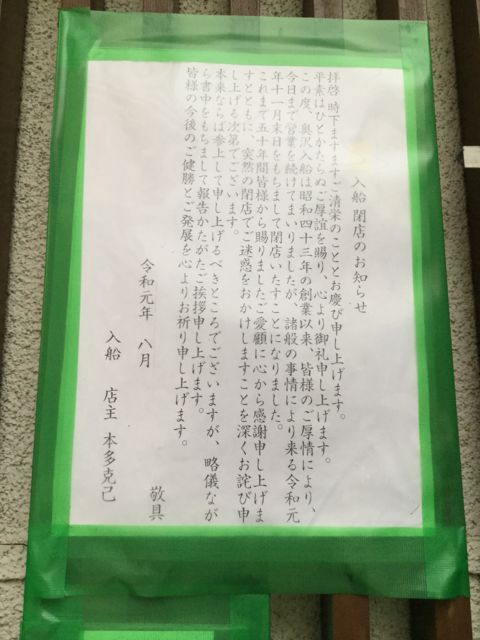 入船 閉店のお知らせ
拝啓 時下ますますご清栄のこととお慶び申し上げます。
平素はひとかたならぬご厚誼を賜り、心より御礼申し上げます。
この度、奥沢入船は昭和四十三年の創業以来、皆様のご厚情により、
今日まで営業を続けてまいりましたが、諸般の事情により来る令和元
年十一月末日をもちまして閉店いたすことになりました。
これまで五十年間皆様から賜りましたご愛顧に心から感謝申し上げま
すとともに、突然の閉店でご迷惑をおかけしますことを深くお詫び申
し上げる次第でございます。
本来ならば参上して申し上げるべきところでございますが、略儀なが
ら書中をもちまして報告かたがたご挨拶申し上げます。
皆様の今後のご健勝とご発展を心よりお祈り申し上げます。
敬具
令和元年 八月
入船 店主 本多克己